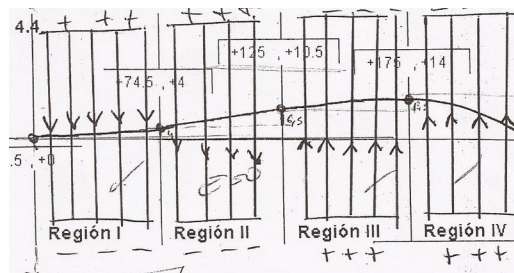 4.4
+ + + + +
+125 , +10.5
+74.5 , +4
+175 , +14
.5 , +0
E=0
Región I
Región II
Región III
Región IV
- - - - - - - -
+ + + + + +